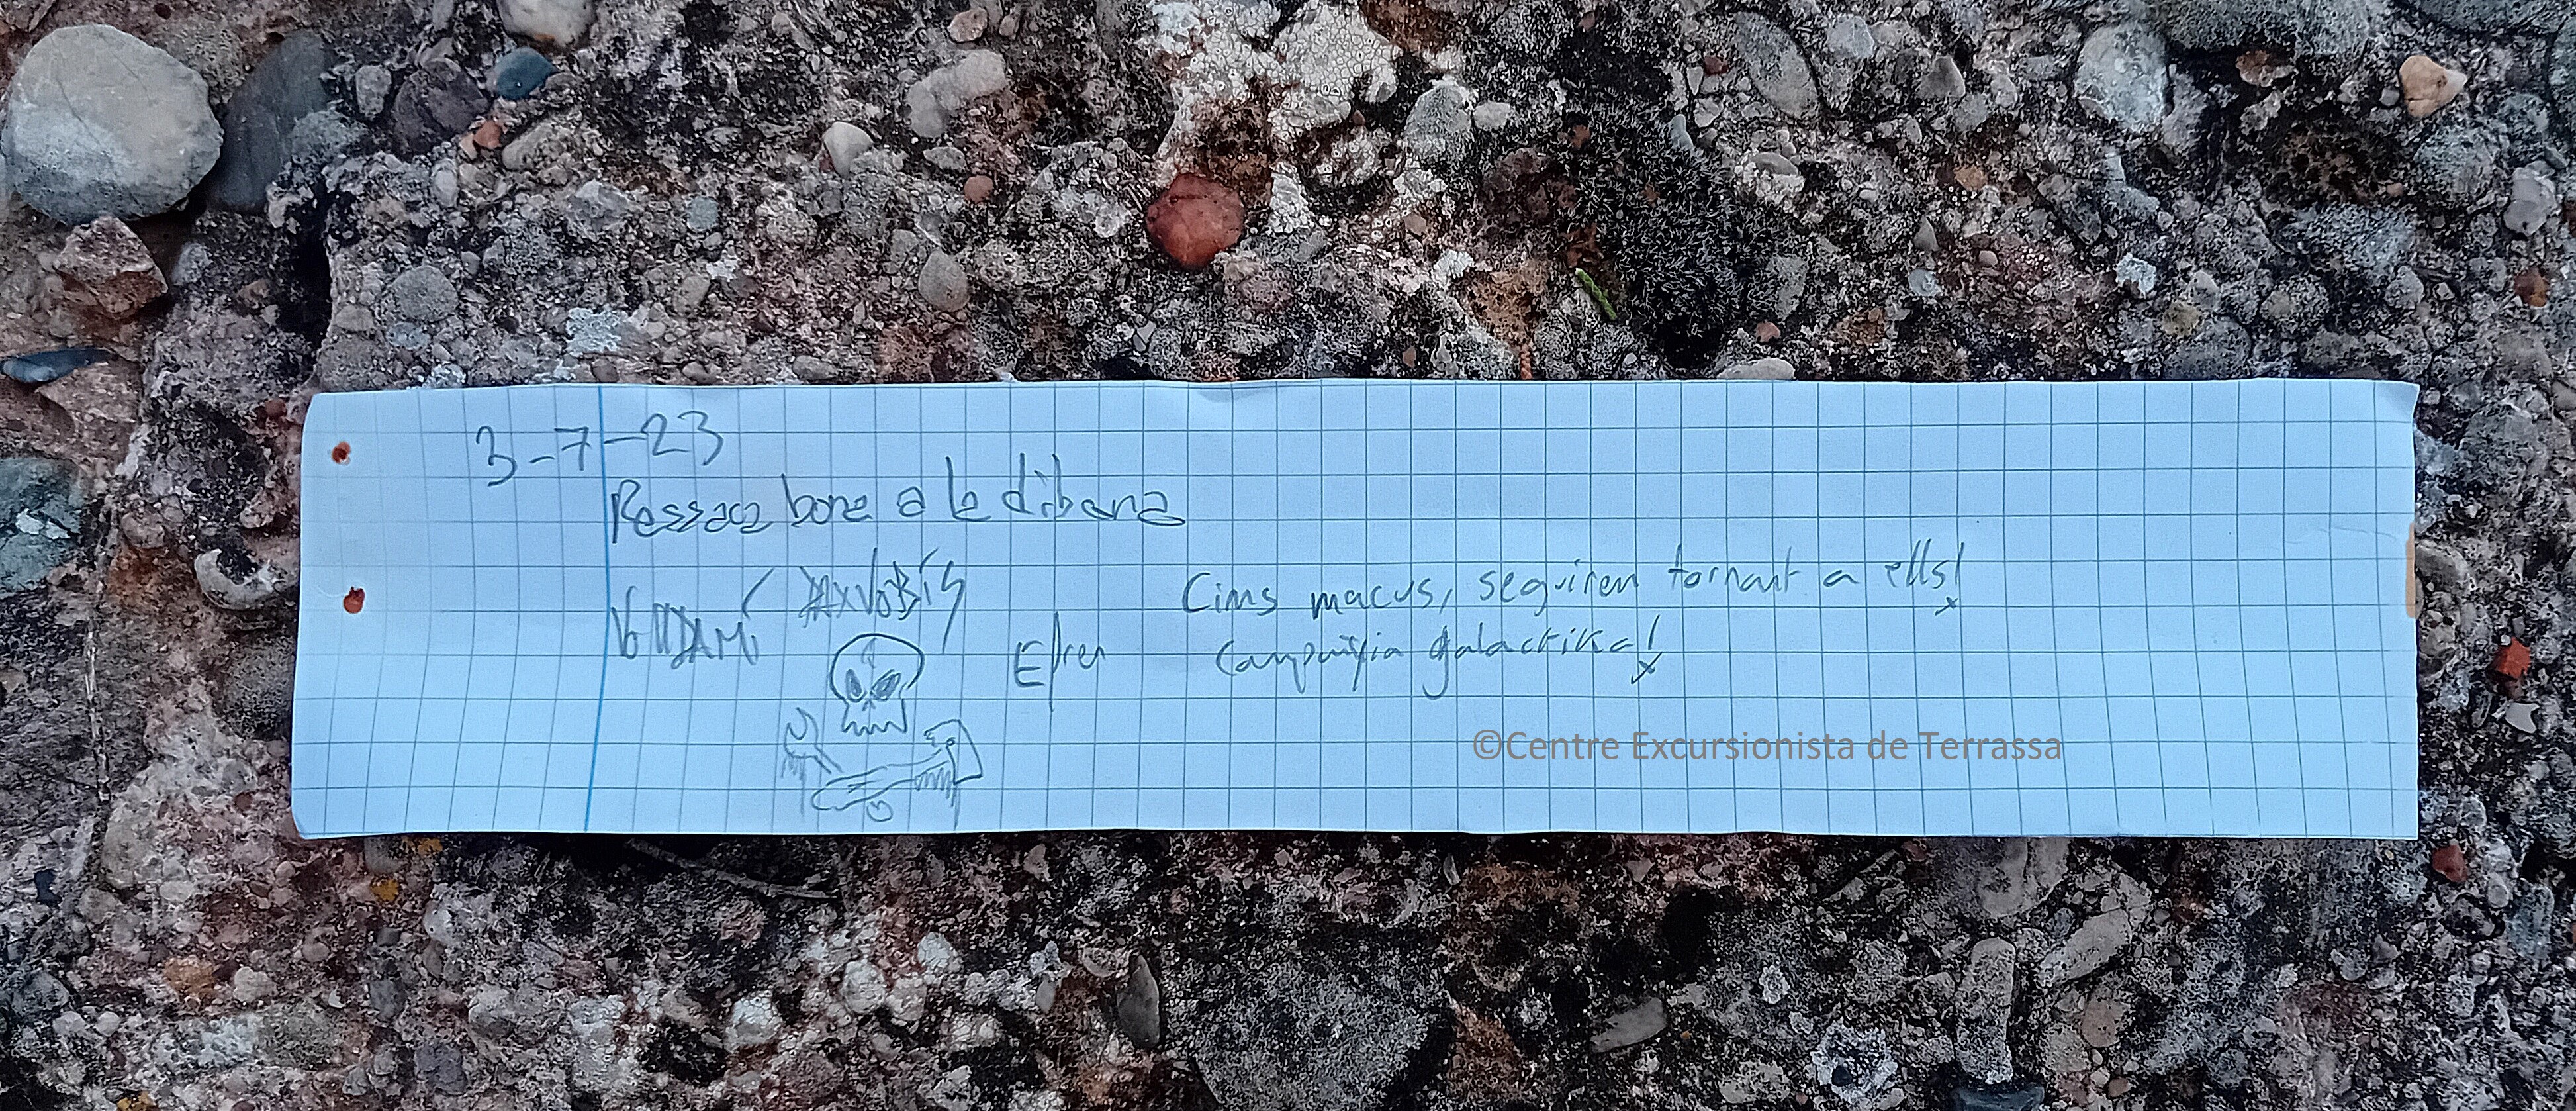 3-7-23
Ressaca bona a la dibona
PAXVOBIS
Cims macus, seguirem tornant a ells!
Efren
galactika!
©Centre Excursionista de Terrassa